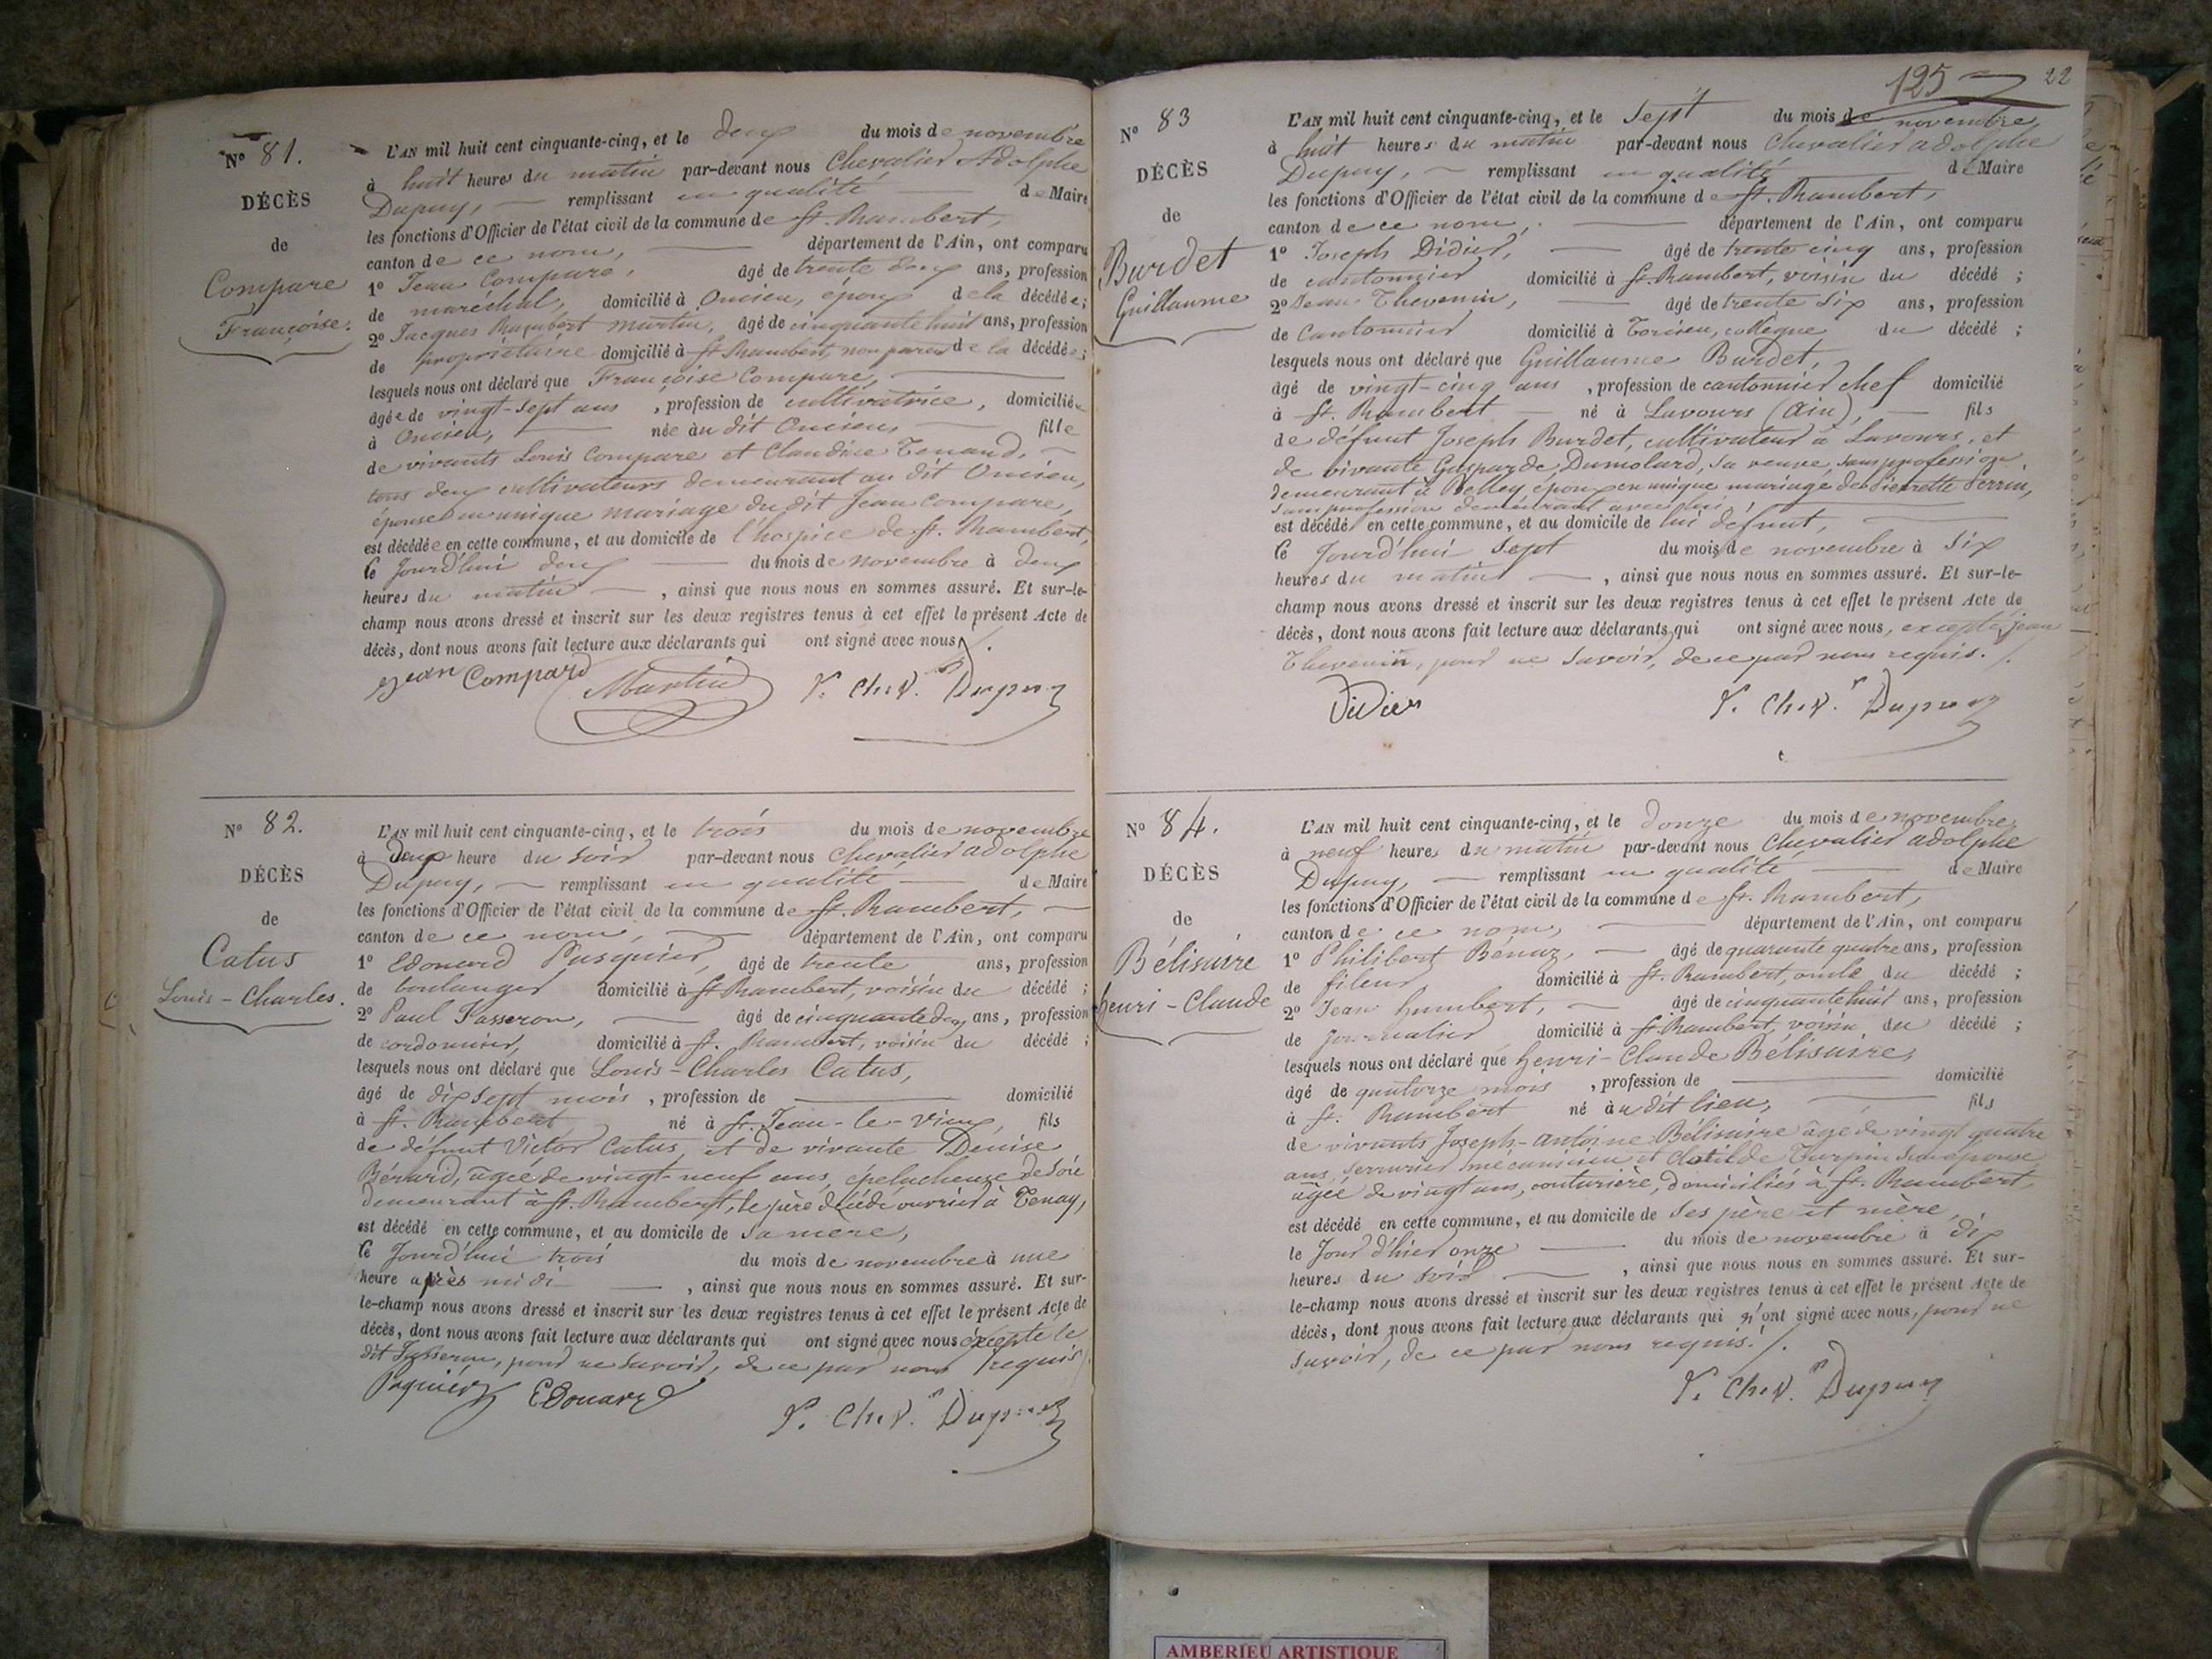 N° 81.
DÉCÈS
de
Compare
Françoise.
L'AN mil huit cent cinquante-cinq, et le deux du mois de novembre
à huit heures du matin par-devant nous Chevalier Adolphe
Dupuy, remplissant en qualité de Maire
les fonctions d'Officier de l'état civil de la commune de St. Rambert,
canton de ce nom, département de l'Ain, ont comparu
1° Jean Compare, âgé de trente deux ans, profession
de maréchal, domicilié à Oncieu, époux de la décédée;
2° Jacques Rambert Martin, âgé de cinquante huit ans, profession
de propriétaire domicilié à St Rambert, non parent de la décédée;
lesquels nous ont déclaré que Françoise Compare,
âgée de vingt-sept ans, profession de cultivatrice, domiciliée
à Oncieu, née au dit Oncieu, fille
de vivants Louis Compare et Claudine Tenand,
tous deux cultivateurs demeurant au dit Oncieu,
épouse en unique mariage du dit Jean Compare,
est décédée en cette commune, et au domicile de l'hospice de St. Rambert,
le Jourd'hui deux du mois de novembre à deux
heures du matin, ainsi que nous nous en sommes assuré. Et sur-le-
champ nous avons dressé et inscrit sur les deux registres tenus à cet effet le présent Acte de
décès, dont nous avons fait lecture aux déclarants qui ont signé avec nous /.
Jean Compard Martin V. Chev.r Dupuy
N° 82.
DÉCÈS
de
Catus
Louis-Charles.
L'AN mil huit cent cinquante-cinq, et le trois du mois de novembre
à deux heure du soir par-devant nous Chevalier adolphe
Dupuy, remplissant en qualité de Maire
les fonctions d'Officier de l'état civil de la commune de St. Rambert,
canton de ce nom, département de l'Ain, ont comparu
1° Edouard Pasquier, âgé de trente ans, profession
de boulanger domicilié à St Rambert, voisin du décédé;
2° Paul Passeron, âgé de cinquante deux ans, profession
de cordonnier, domicilié à St. Rambert, voisin du décédé;
lesquels nous ont déclaré que Louis-Charles Catus,
âgé de dix sept mois, profession de domicilié
à St. Rambert né à St. Jean-le-Vieux, fils
de défunt Victor Catus, et de vivante Denise
Bérard, âgée de vingt-neuf ans, éplucheuse de soie
demeurant à St. Rambert, le père décédé ouvrier à Tenay,
est décédé en cette commune, et au domicile de sa mère,
le Jourd'hui trois du mois de novembre à une
heure après midi, ainsi que nous nous en sommes assuré. Et sur-
le-champ nous avons dressé et inscrit sur les deux registres tenus à cet effet le présent Acte de
décès, dont nous avons fait lecture aux déclarants qui ont signé avec nous excepté le
dit Passeron, pour ne savoir, de ce par nous requis /.
Paquier Edouard V. Chev.r Dupuy
125 22
N° 83
DÉCÈS
de
Burdet
Guillaume
L'AN mil huit cent cinquante-cinq, et le Sept du mois de novembre
à huit heures du matin par-devant nous Chevalier adolphe
Dupuy, remplissant en qualité de Maire
les fonctions d'Officier de l'état civil de la commune de St. Rambert,
canton de ce nom, département de l'Ain, ont comparu
1° Joseph Didier, âgé de trente cinq ans, profession
de cantonnier domicilié à St. Rambert, voisin du décédé;
2° Jean Thevenin, âgé de trente six ans, profession
de Cantonnier domicilié à Torcieu, collègue du décédé;
lesquels nous ont déclaré que Guillaume Burdet,
âgé de vingt-cinq ans, profession de cantonnier chef domicilié
à St. Rambert né à Lavours (Ain), fils
de défunt Joseph Burdet, cultivateur à Lavours, et
de vivante Gasparde Dumolard, sa veuve, sans profession
demeurant à Belley époux en unique mariage de Pierrette Perrin,
sans profession demeurant avec lui,
est décédé en cette commune, et au domicile de lui défunt,
le Jourd'hui sept du mois de novembre à six
heures du matin, ainsi que nous nous en sommes assuré. Et sur-le-
champ nous avons dressé et inscrit sur les deux registres tenus à cet effet le présent Acte de
décès, dont nous avons fait lecture aux déclarants qui ont signé avec nous, excepté Jean
Thevenin, pour ne savoir, de ce par nous requis. /.
Didier V. Chev.r Dupuy
N° 84.
DÉCÈS
de
Bélisuire
henri-Claude
L'AN mil huit cent cinquante-cinq, et le douze du mois de novembre
à neuf heures du matin par-devant nous Chevalier adolphe
Dupuy, remplissant en qualité de Maire
les fonctions d'Officier de l'état civil de la commune de St. Rambert,
canton de ce nom, département de l'Ain, ont comparu
1° Philibert Bénaz, âgé de quarante quatre ans, profession
de fileur domicilié à St. Rambert, oncle du décédé;
2° Jean humbert, âgé de cinquante huit ans, profession
de journalier domicilié à St. Rambert, voisin du décédé;
lesquels nous ont déclaré que henri-Claude Bélisuire,
âgé de quatorze mois, profession de domicilié
à St. Rambert né au dit lieu, fils
de vivants Joseph-antoine Bélisuire âgé de vingt quatre
ans, serrurier mécanicien et Clotilde Turpin son épouse
âgée de vingt ans, couturière, domiciliés à St. Rambert
est décédé en cette commune, et au domicile de ses père et mère,
le Jour d'hier onze du mois de novembre à dix
heures du soir, ainsi que nous nous en sommes assuré. Et sur-
le-champ nous avons dressé et inscrit sur les deux registres tenus à cet effet le présent Acte de
décès, dont nous avons fait lecture aux déclarants qui n'ont signé avec nous, pour ne
savoir, de ce par nous requis. /.
V. Chev.r Dupuy
AMBERIEU ARTISTIQUE